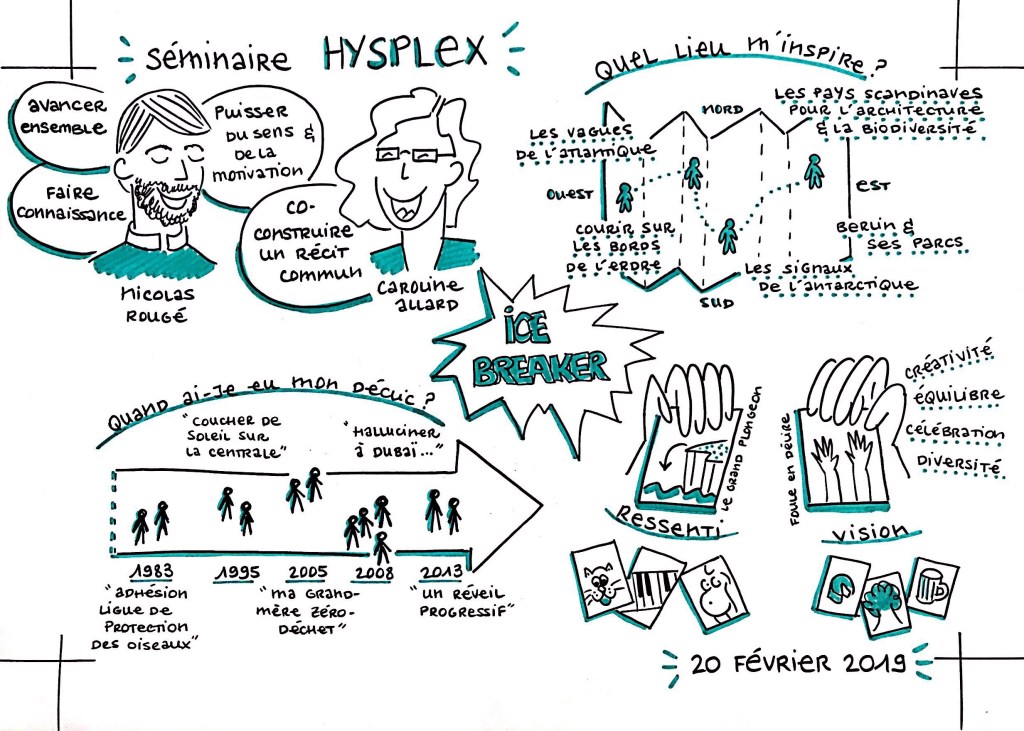 Séminaire HYSPLEX
avancer
ensemble
Faire
connaissance
Puisser
du sens &
de la
motivation
co-
construire
un récit
commun
Nicolas
Rougé
Caroline
Allard
Quel lieu m'inspire ?
Nord
Les pays scandinaves
pour l'architecture
& la biodiversité
Les vagues
de l'Atlantique
Ouest
Est
Courir sur
les bords
de l'Erdre
Berlin &
ses parcs
Les signaux
de l'Antarctique
Sud
ICE
BREAKER
Quand ai-je eu mon déclic ?
"Coucher de
soleil sur
la centrale"
"Halluciner
à Dubaï..."
1983
1995
2005
2008
2013
"adhésion
Ligue de
Protection
des oiseaux"
"ma grand-
mère zéro-
déchet"
"un réveil
progressif"
Le grand plongeon
Ressenti
Foule en délire
Vision
créativité
équilibre
célébration
diversité
20 février 2019